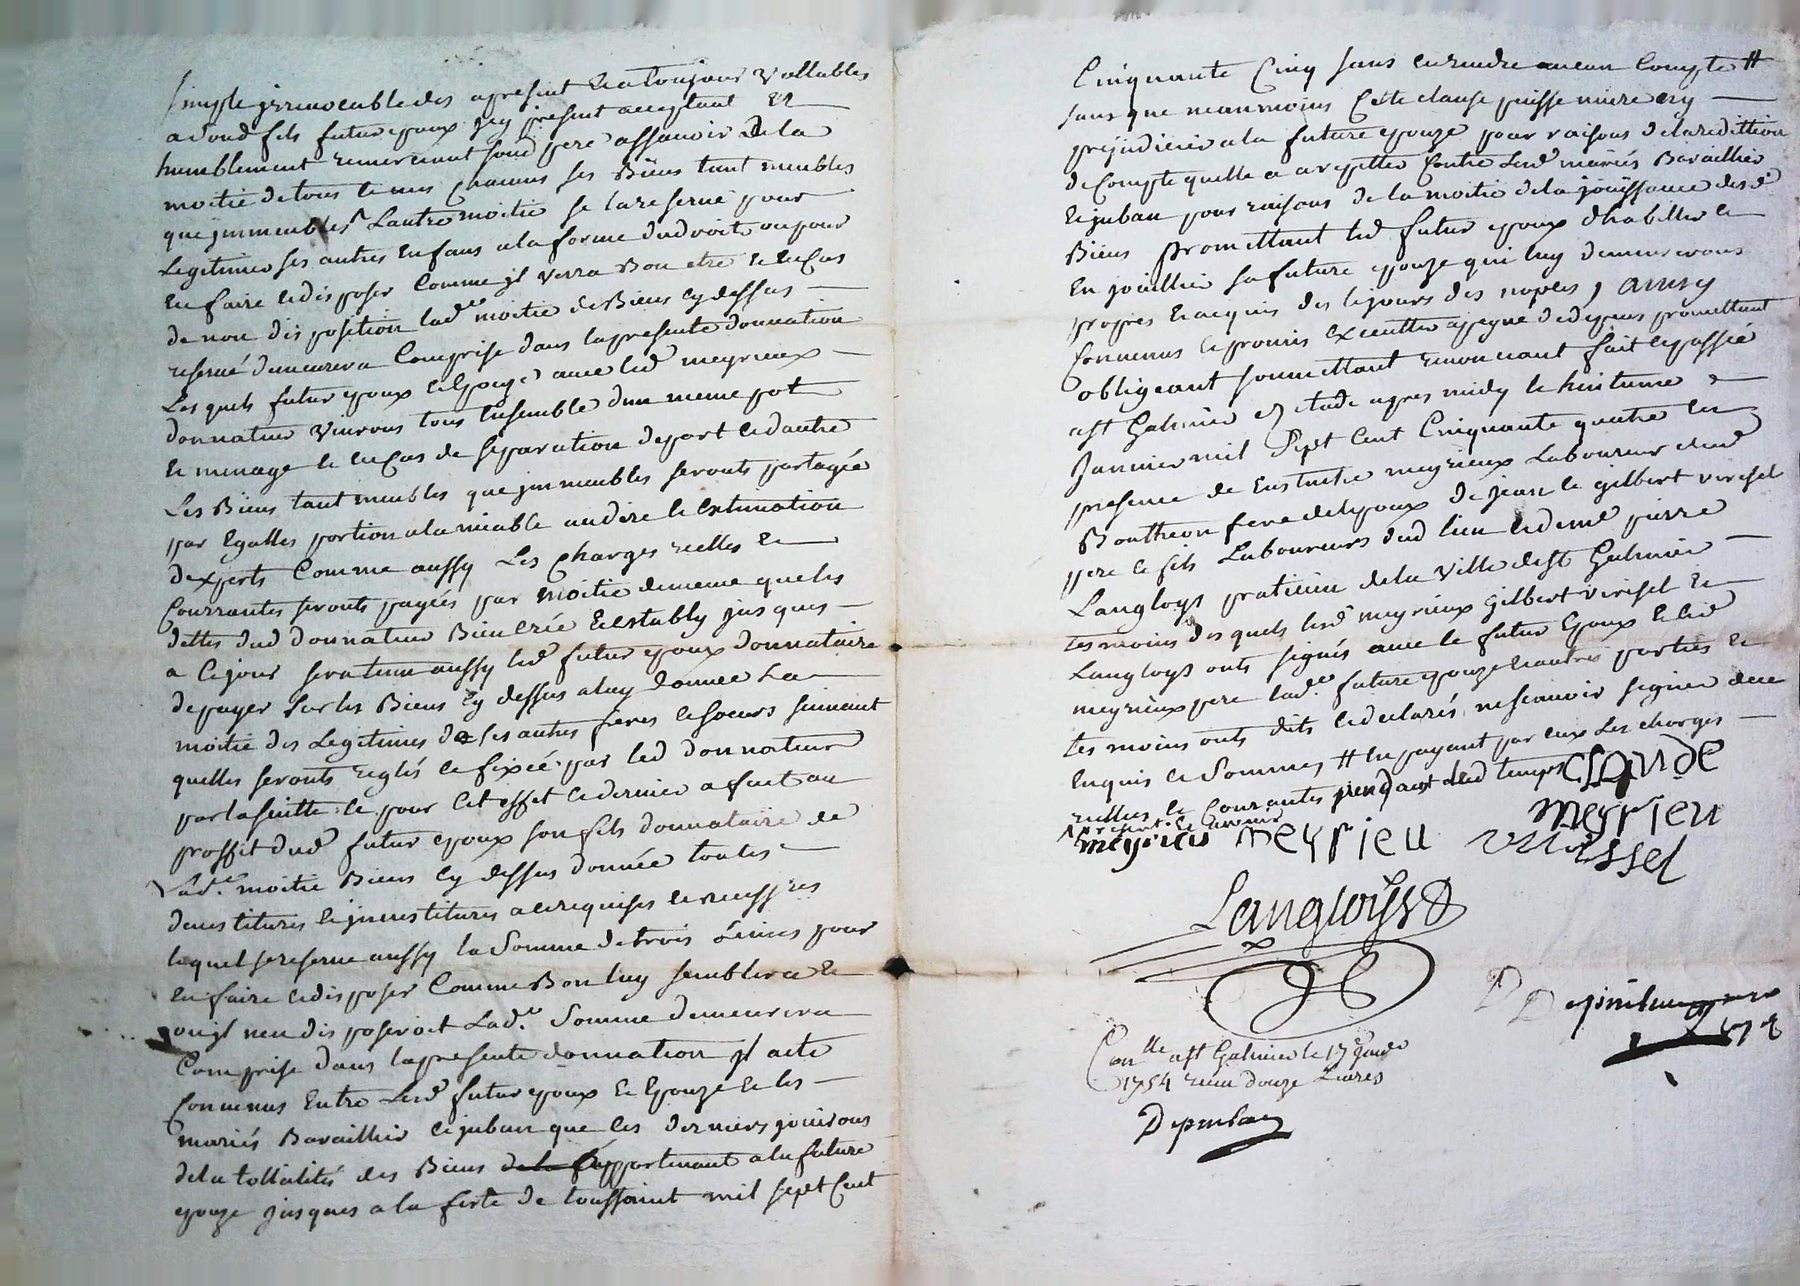 simple jrrevocable des apresent et a toujours vallables
a sond fils futur epoux jcy present acceptant et
humblement remerciant sond pere assavoir de la
moitié de tous le mes chacuns ses Biens tant meubles
que jmmeubles Lautre moitié se la reserve pour
Legitimer ses autres enfans a la forme dudroit ou pour
en faire et disposer comme jl verra Bon etre et en cas
de non disposition lade moitié de Biens cy dessus
reservé demeurera comprise dans la presente donnation
Les quels futur epoux et Epouze avec led meyrieux
donnateur vivrons tous ensemble dun meme pot
et menage et en cas de separation de part et dautre
Les Biens tant meubles que jmmeubles seronts partagée
par Egalles portion a lamiable au dire et estimation
dexperts comme aussy Les charges reelles et
courrantes seronts payées par moitié de meme que les
dettes dud donnateur Bien crée et establly jusques
a ce jour sera tenu aussy led futur epoux donnataire
de payer sur les Biens cy dessus a luy donnee La
moitié des Legitimes de ses autres freres et soeurs suivant
quelles seronts reglés et fixéé par led donnateur
par la suitte et pour cet effet ce dernier a fait au
proffit dud futur epoux son fils donnataire de
lade moitié Biens cy dessus donnée toutes
devestitures et jnvestitures a ce requises et necessres
lequel se reserve aussy la somme de trois Livres pour
en faire et disposer comme Bon luy semblera et
ou jl nen disposeroit Lade somme demeurera
comprise dans la presente donnation jl a ete
convenus entre Lesd futur epoux et Epouze et les
mariés Baraillier et juban que ces derniers jouirons
de la tottalités des Biens appartenant a la future
epouze jusques a la feste de toussaint mil sept cent
Cinquante Cinq sans en rendre aucun compte #
sans que neanmoins cette clause puisse nuire ny
prejudicier a la future epouze pour raisons de la reddition
de compte quelle a a repetter contre Lesd mariés Baraillier
et juban pour raisons de la moitié de la jouissance desd
Biens promettant led futur epoux dhabiller et
en joüellier sa future epouze qui luy demeurerons
propres et acquis des le jours des nopces, ainsy
convenus et promis executter apeyne de depens promettant
obligeant soumettant renonceant fait et passée
a st Galmier etude apres midy le huitieme
Janvier mil sept cent cinquante quatre en
presence de meyrieux Laboureur dud
Bontheon frere de lepoux de jean et gilbert virissel
pere et fils Laboureurs dud lieu et de me pierre
Langloys praticien de la ville de st Galmier
temoins des quels lesd meyrieux gilbert virissel et
Langloys onts signés avec le futur Epoux et led
meyrieux pere lade future epouze et autres parties et
temoins onts dits et declarés ne scavoir signer de ce
enquis et Sommes # en payant par eux Les charges
reelles et courantes pendant led temps
apresent et l avenir
Claude
meyrieu
meyrieu meyrieu virissel
Langloys
Conlle a st Galmier le 17e janvr
1754 receu douze Livres